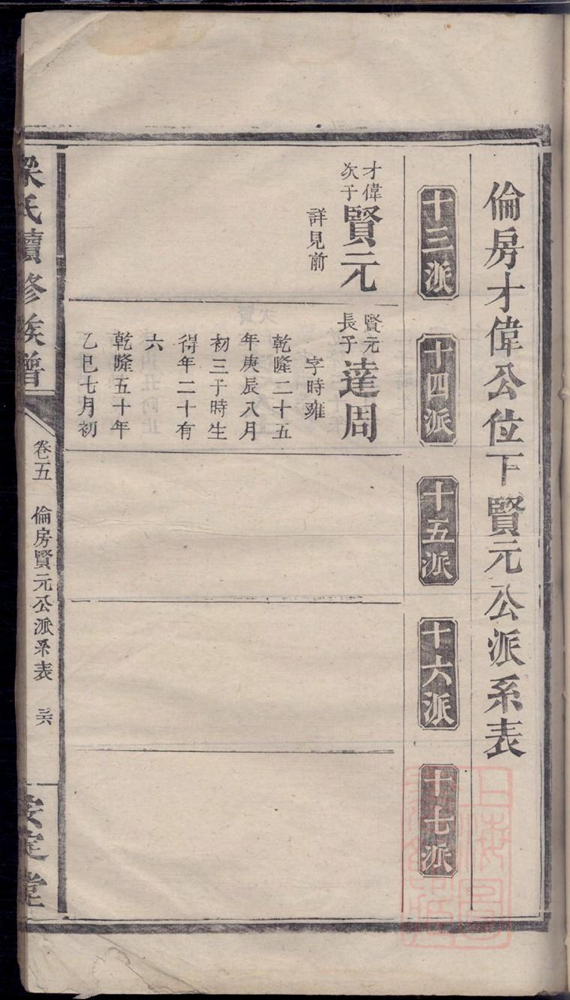 倫房才偉公位下賢元公派系表
十三派
十四派
十五派
十六派
十七派
才偉
次子
賢元
詳見前
賢元
長子
達周
字時雍
乾隆二十五
年庚辰八月
初三子時生
得年二十有
六
乾隆五十年
乙巳七月初
梁氏續修族譜
卷五
倫房賢元公派系表
三六
安定堂